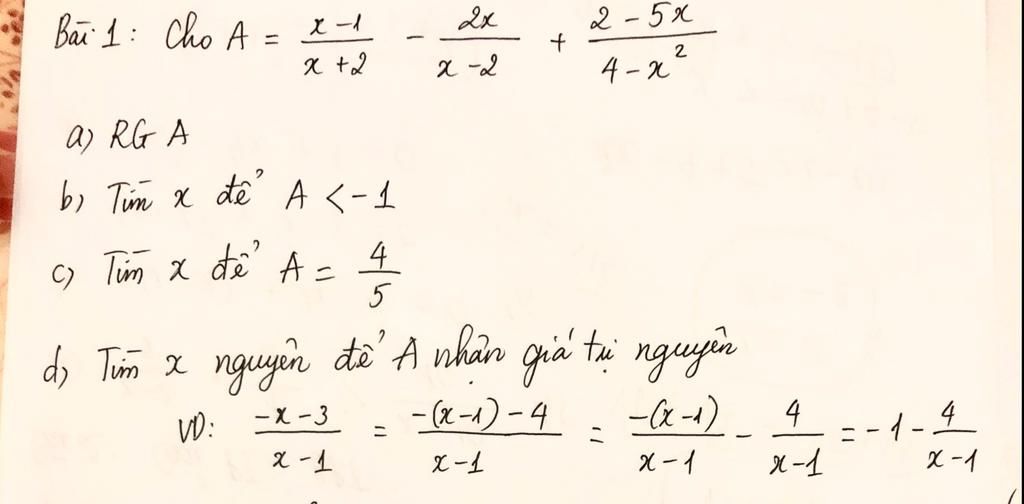 Bài 1: Cho A = \frac{x-1}{x+2} - \frac{2x}{x-2} + \frac{2-5x}{4-x^2}
a) RG A
b) Tìm x để A < -1
c) Tìm x để A = \frac{4}{5}
d) Tìm x nguyên để A nhận giá trị nguyên
VD: \frac{-x-3}{x-1} = \frac{-(x-1)-4}{x-1} = \frac{-(x-1)}{x-1} - \frac{4}{x-1} = -1 - \frac{4}{x-1}